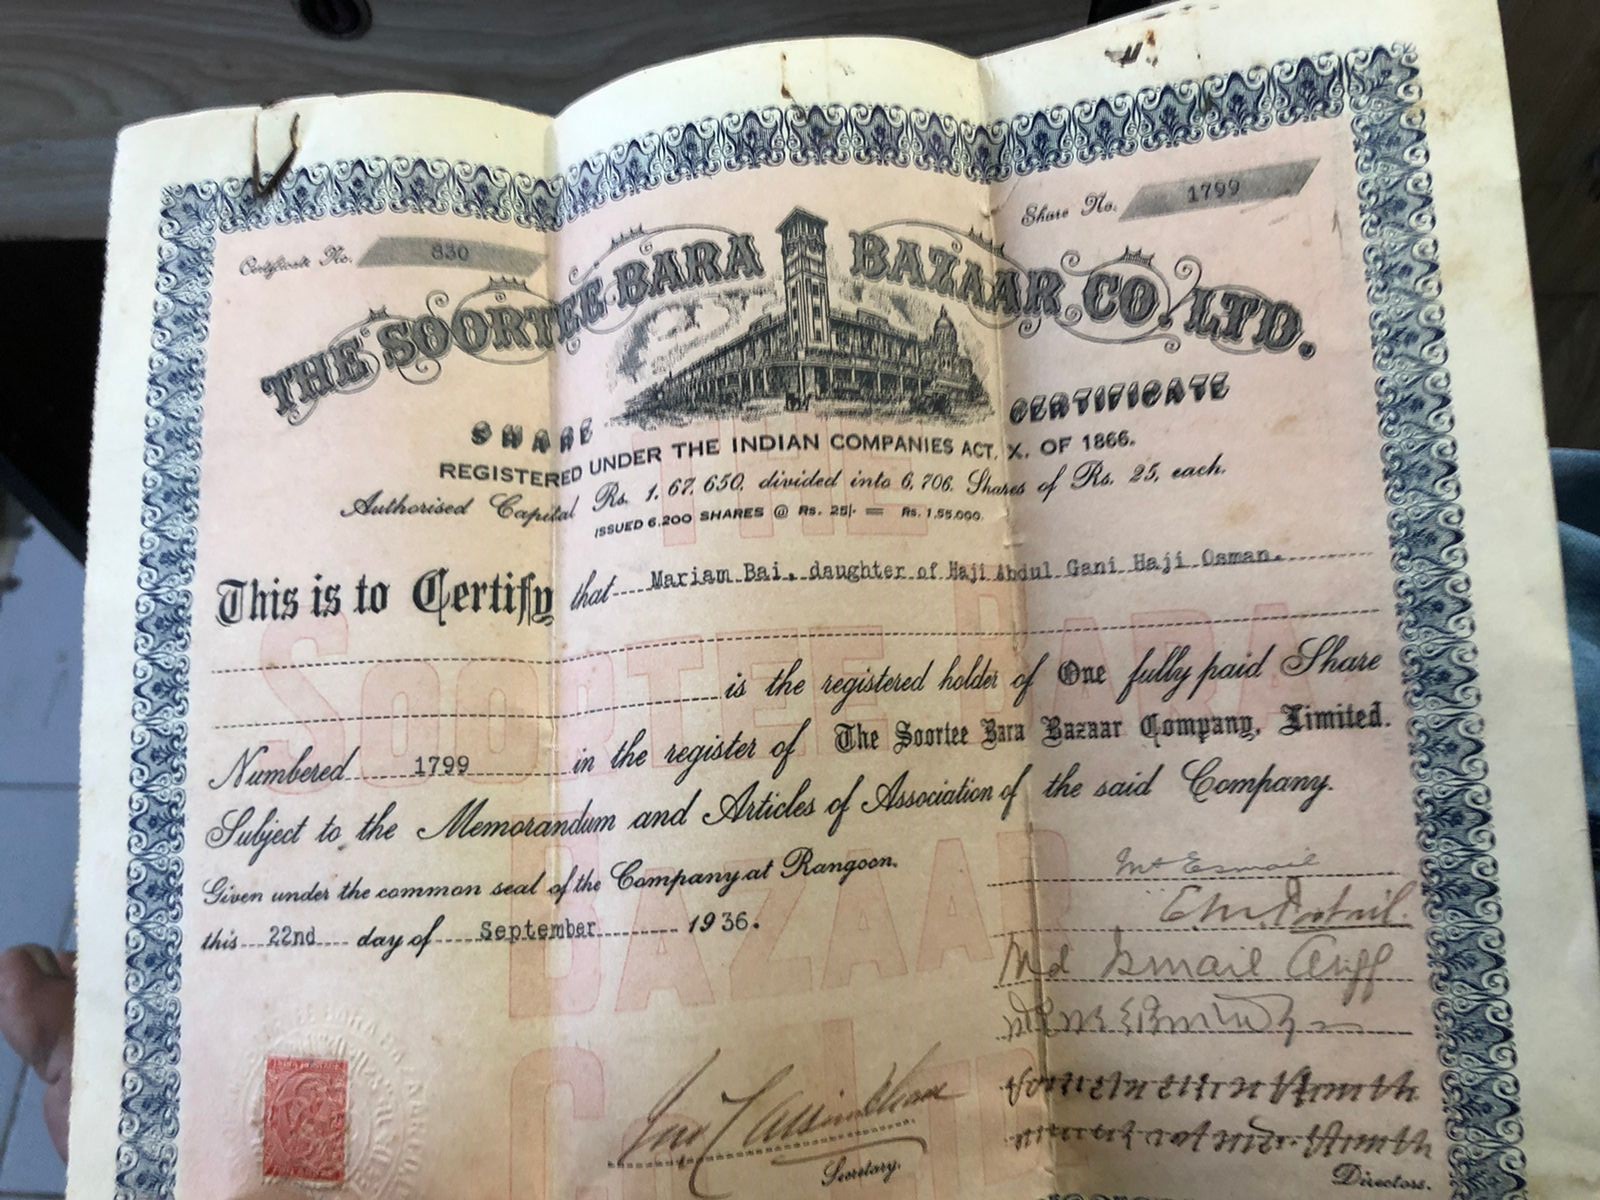 Certificate No. 830
Share No. 1799
THE SOORTEE BARA BAZAAR CO. LTD.
SHARE CERTIFICATE
REGISTERED UNDER THE INDIAN COMPANIES ACT, X. OF 1866.
Authorised Capital Rs. 1,67,650, divided into 6,706, Shares of Rs. 25, each.
ISSUED 6,200 SHARES @ Rs. 25/- = Rs. 1,55,000.
This is to Certify that Mariam Bai, daughter of Haji Abdul Gani Haji Osman.
is the registered holder of One fully paid Share
Numbered 1799 in the register of The Soortee Bara Bazaar Company, Limited.
Subject to the Memorandum and Articles of Association of the said Company.
Given under the common seal of the Company at Rangoon.
this 22nd day of September 1936.
THE
SOORTEE BARA
BAZAAR
Co LTD
Md Ismail Ariff
Secretary.
Directors.